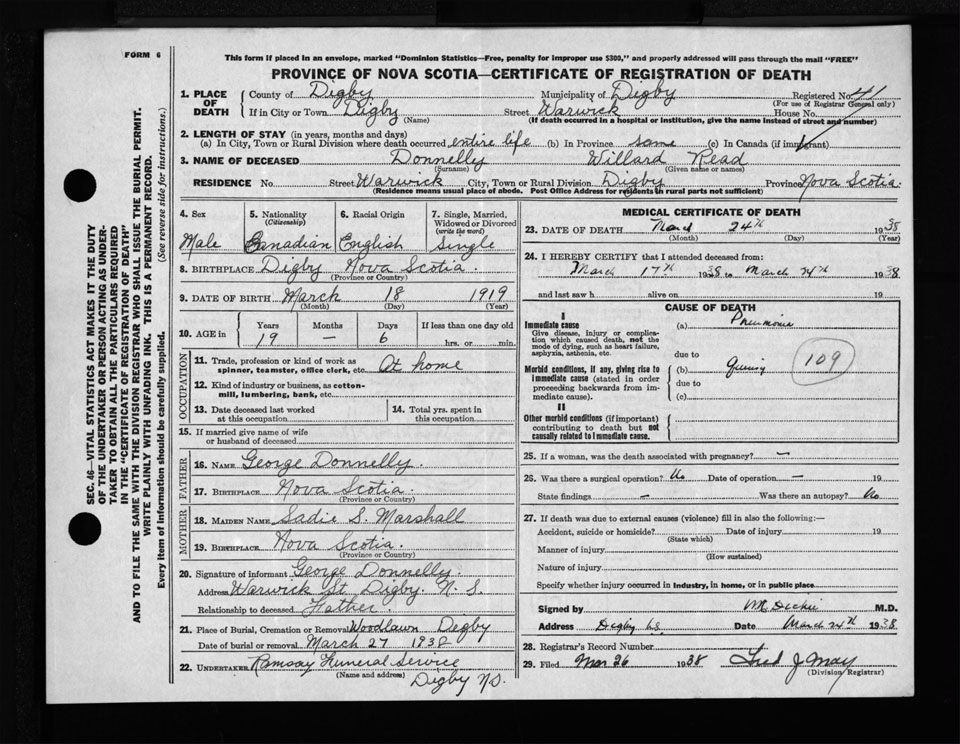 FORM 6
This form if placed in an envelope, marked "Dominion Statistics—Free, penalty for improper use $300," and properly addressed will pass through the mail "FREE"
PROVINCE OF NOVA SCOTIA—CERTIFICATE OF REGISTRATION OF DEATH
SEC. 46—VITAL STATISTICS ACT MAKES IT THE DUTY
OF THE UNDERTAKER OR PERSON ACTING AS UNDER-
TAKER TO OBTAIN ALL THE PARTICULARS REQUIRED
IN THE "CERTIFICATE OF REGISTRATION OF DEATH"
AND TO FILE THE SAME WITH THE DIVISION REGISTRAR WHO SHALL ISSUE THE BURIAL PERMIT.
WRITE PLAINLY WITH UNFADING INK. THIS IS A PERMANENT RECORD.
Every item of information should be carefully supplied. (See reverse side for instructions.)
1. PLACE OF DEATH
County of Digby Municipality of Digby Registered No. 41
(For use of Registrar General only)
If in City or Town Digby Street Warwick House No.
(Name) (If death occurred in a hospital or institution, give the name instead of street and number)
2. LENGTH OF STAY (in years, months and days)
(a) In City, Town or Rural Division where death occurred entire life (b) In Province same (c) In Canada (if immigrant)
3. NAME OF DECEASED Donnelly Willard Read
(Surname) (Given name or names)
RESIDENCE No Street Warwick City, Town or Rural Division Digby Province Nova Scotia.
(Residence means usual place of abode. Post Office Address for residents in rural parts not sufficient)
4. Sex
Male
5. Nationality
(Citizenship)
Canadian
6. Racial Origin
English
7. Single, Married,
Widowed or Divorced
(write the word)
Single
8. BIRTHPLACE Digby Nova Scotia.
(Province or Country)
9. DATE OF BIRTH March 18 1919
(Month) (Day) (Year)
10. AGE in
Years Months Days If less than one day old
19 — 6 hrs. or min.
OCCUPATION
11. Trade, profession or kind of work as
spinner, teamster, office clerk, etc. At home
12. Kind of industry or business, as cotton-
mill, lumbering, bank, etc.
13. Date deceased last worked
at this occupation
14. Total yrs. spent in
this occupation
15. If married give name of wife
or husband of deceased
FATHER
16. NAME George Donnelly.
17. BIRTHPLACE Nova Scotia.
(Province or Country)
MOTHER
18. MAIDEN NAME Sadie S. Marshall
19. BIRTHPLACE Nova Scotia.
(Province or Country)
20. Signature of informant George Donnelly.
Address Warwick St Digby. N. S.
Relationship to deceased Father.
21. Place of Burial, Cremation or Removal Woodlawn Digby
Date of burial or removal March 27 1938
22. UNDERTAKER Ramsay Funeral Service
(Name and address) Digby NS.
MEDICAL CERTIFICATE OF DEATH
23. DATE OF DEATH March 24th 1938
(Month) (Day) (Year)
24. I HEREBY CERTIFY that I attended deceased from:
March 17th 1938 to March 24th 1938
and last saw h alive on 19
CAUSE OF DEATH
I
Immediate cause
Give disease, injury or complica-
tion which caused death, not the
mode of dying, such as heart failure,
asphyxia, asthenia, etc.
(a) Pneumonia
due to
Morbid conditions, if any, giving rise to
immediate cause (stated in order
proceeding backwards from im-
mediate cause).
(b) Quinsy
109
due to
(c)
II
Other morbid conditions (if important)
contributing to death but not
causally related to immediate cause.
25. If a woman, was the death associated with pregnancy? —
26. Was there a surgical operation? No Date of operation — 19
State findings — Was there an autopsy? No
27. If death was due to external causes (violence) fill in also the following:—
Accident, suicide or homicide? Date of injury 19
(State which)
Manner of injury
(How sustained)
Nature of injury
Specify whether injury occurred in industry, in home, or in public place
Signed by Dickie M.D.
Address Digby NS Date March 24th 1938
28. Registrar's Record Number
29. Filed Mar 26 1938 Fred J May
(Division Registrar)